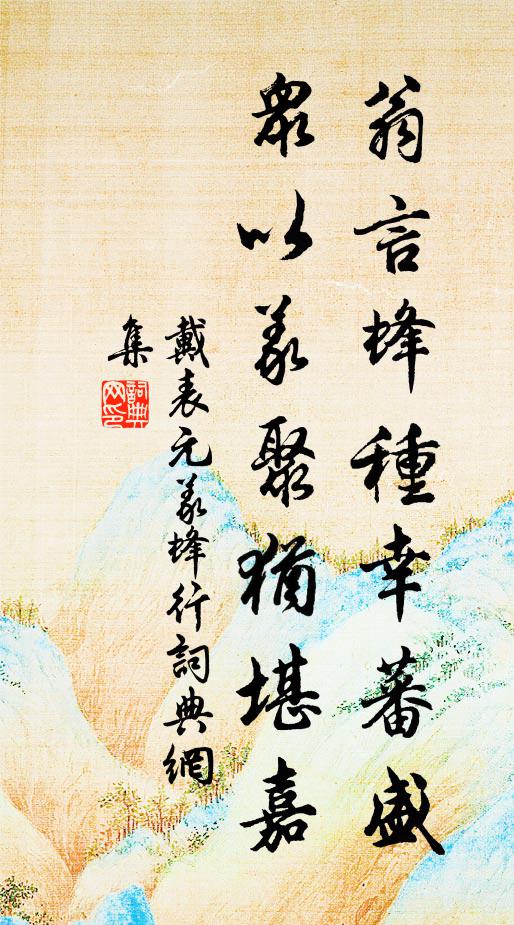 翁言蜂種幸蕃盛
眾以義聚猶堪嘉
戴表元義蜂行詞典網
集
詞典
网印